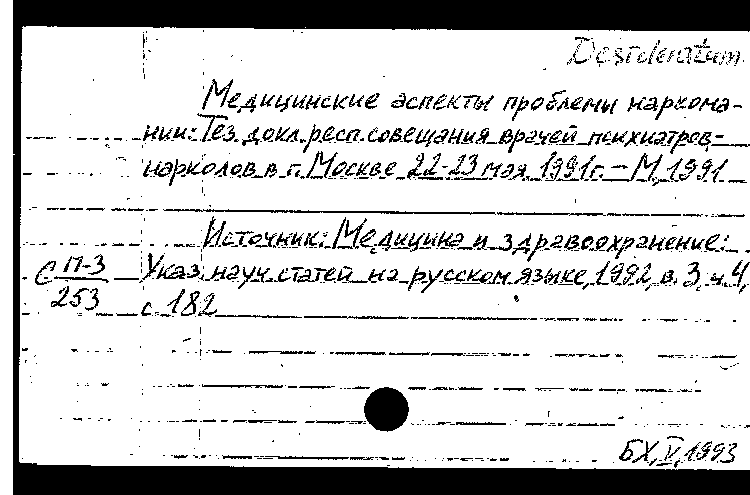 Desideratum
Медицинские аспекты проблемы наркома-
нии: Тез. докл. респ. совещания врачей психиатров-
наркологов в г. Москве 22-23 мая 1991г. – М, 1991
Источник: Медицина и здравоохранение:
С П-3 Указ. науч. статей на русском языке, 1992, в. 3, ч. 4,
253 с. 182
БХ, V, 1993